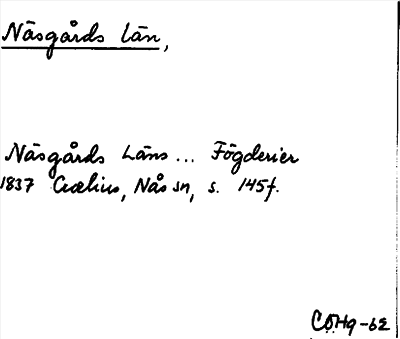 Näsgårds län,
Näsgårds Läns... Fögderier
1837 Crælius, Nås sn, s. 145f.
CÖHq-62